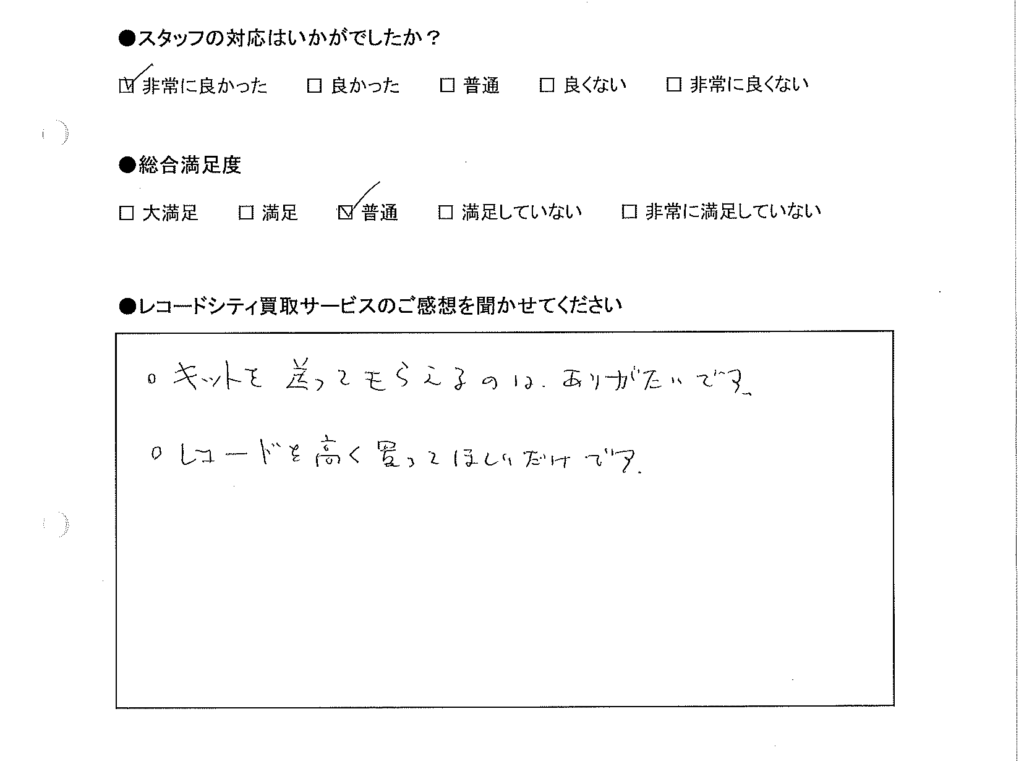 ●スタッフの対応はいかがでしたか？
☑ 非常に良かった □ 良かった □ 普通 □ 良くない □ 非常に良くない
●総合満足度
□ 大満足 □ 満足 ☑ 普通 □ 満足していない □ 非常に満足していない
●レコードシティ買取サービスのご感想を聞かせてください
○ キットを送ってもらえるのは、ありがたいです。
○ レコードを高く買ってほしいだけです。